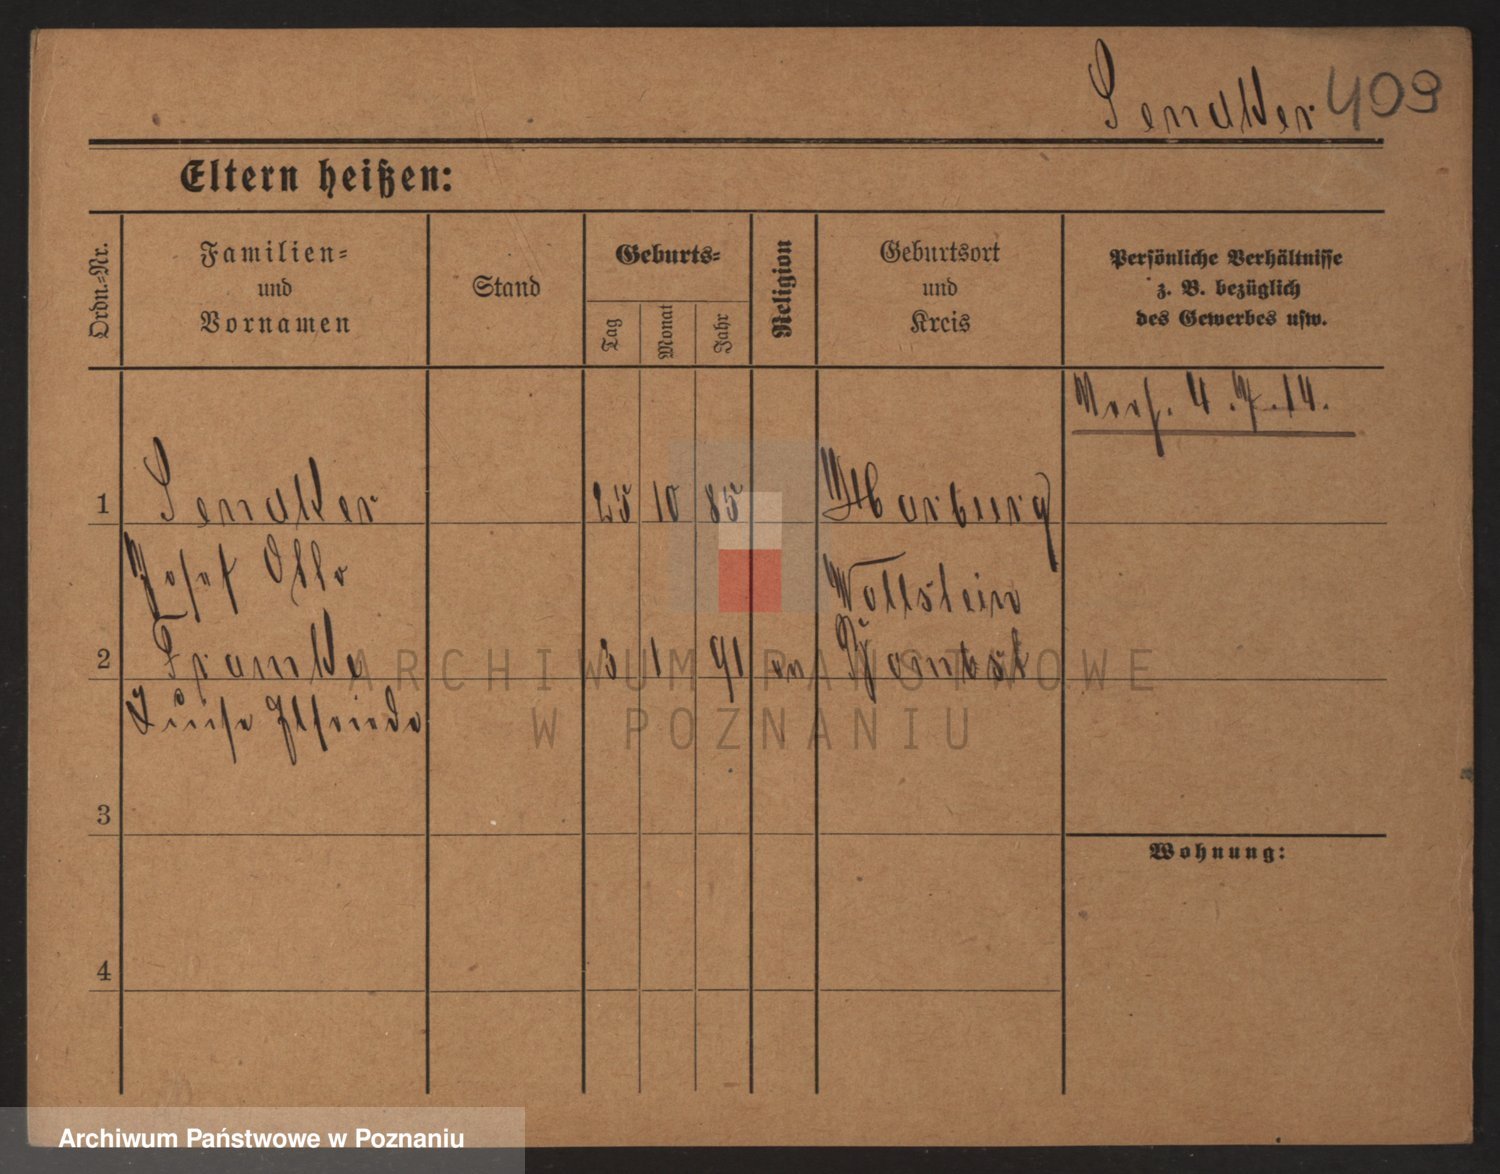 Sendker 409
Eltern heißen:
Ordn.=Nr.
Familien=
und
Vornamen
Stand
Geburts=
Tag
Monat
Jahr
Religion
Geburtsort
und
Kreis
Persönliche Verhältnisse
z. B. bezüglich
des Gewerbes usw.
4.7.14.
1 25 10 85
Josef Otto Wollstein
2 Franke 3 1 91 ev Bomst
Luise Elfriede
3
Wohnung:
4
ARCHIWUM PAŃSTWOWE
W POZNANIU
Archiwum Państwowe w Poznaniu